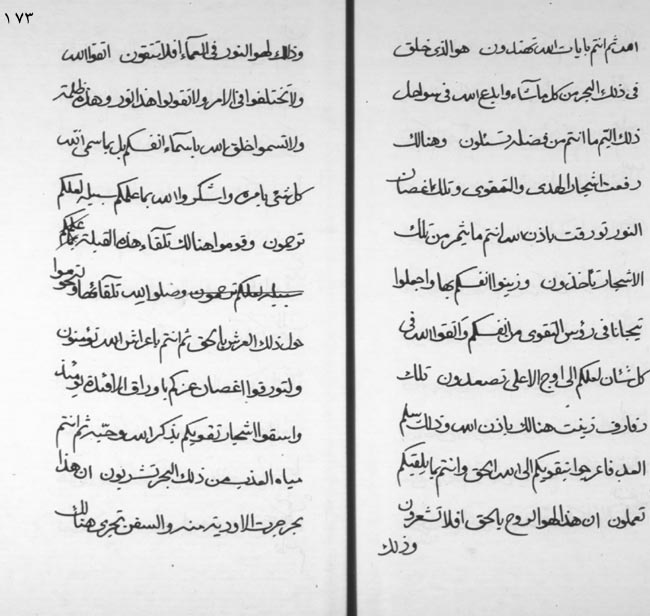 ١٧٣
الله ثم انتم بايات الله تهتدون هو الذى خلق
فى ذلك البحر من كل ما شاء وابدع الله فى سواحل
ذلك اليم ما انتم من فضله تسئلون وهنالك
رفعت اشجار الهدى والتقوى وتلك اغصان
النور تورقت باذن الله انتم ما يثمر من تلك
الاشجار تأخذون وزينوا انفسكم بها واجعلوا
تيجانا فى رؤس التقوى من انفسكم واتقوا الله فى
كل شئان لعلكم الى اوج الاعلى تصعدون تلك
رفارف زينت هنالك باذن الله وذلك سلم
العدل فاعرجوا بتقويكم الى الله بالحق وانتم بما يلقيكم
تعملون ان هذا لهو الروح بالحق افلا تشعرون
وذلك
وذلك لهو النور فى السماء افلا تتقون اتقوا الله
ولا تختلفوا فى الامر ولا تقولوا هذا نور وهذه ظلمة
ولا تسموا خلق الله باسماء انفسكم بل بما سمى الله
كل شئ بامره واشكروا الله بما علمكم سبيله لعلكم
ترحمون وقوموا هنالك تلقاء هذه القبلة بما علمكم
سبيله لعلكم ترحمون وصلوا لله تلقائها وحوموا
حول ذلك العرش بالحق ثم انتم باعراش الله تؤمنون
ولتورقوا اغصان عزكم باوراق الافئدة يومئذ
واسقوا اشجار تقويكم بذكر الله وحبه ثم انتم
مياه العذب من ذلك البحر تشربون ان هذا
بحر جرت الاودية منه والسفن تجرى هنالك